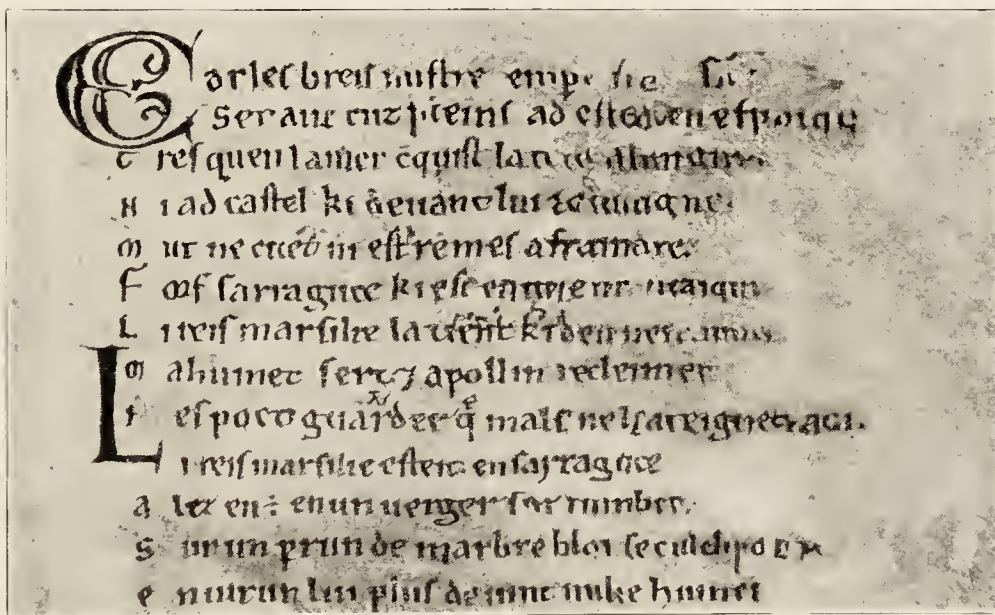 Carles li reis nostre empe
Set anz tuz pleins ad ested en espaigne
Tresquen la mer cquist la tere altaigne
N i ad castel ki deuant lui remaigne.
M ur ne citet ni est remes a fraindre.
F ors sarraguce ki est en une muntaigne
L i reis marsilie la tient ki deu nen aimet.
M ahumet sert ⁊ apollin recleimet
N es poet guarder q̄ mals nel i ateignet. aoi.
L i reis marsilie esteit en sarraguce
A lez en ÷ en un uerger suz lumbre.
S ur un perrun de marbre bloi se culchet
E nuirun lui plus de uint milie humes